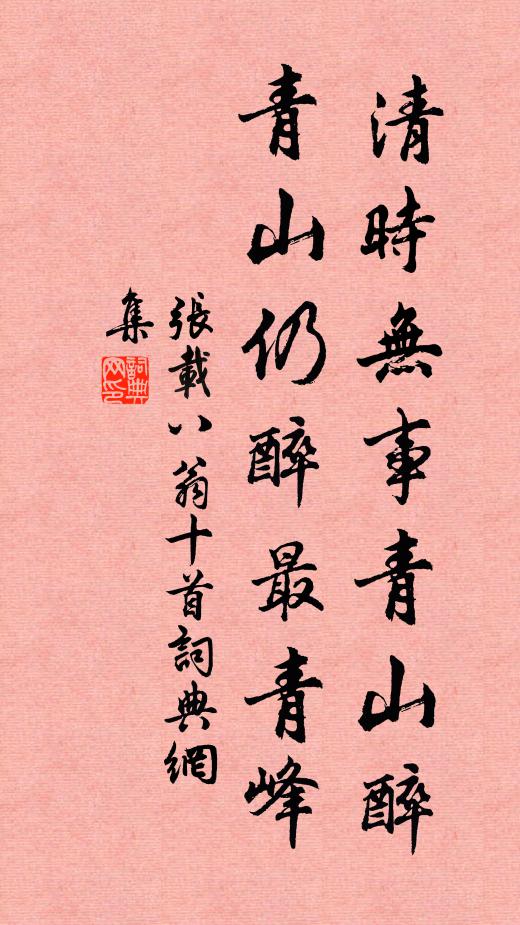 清時無事青山醉
青山仍醉最青峰
張載八翁十首詞典網
集
詞典
网印